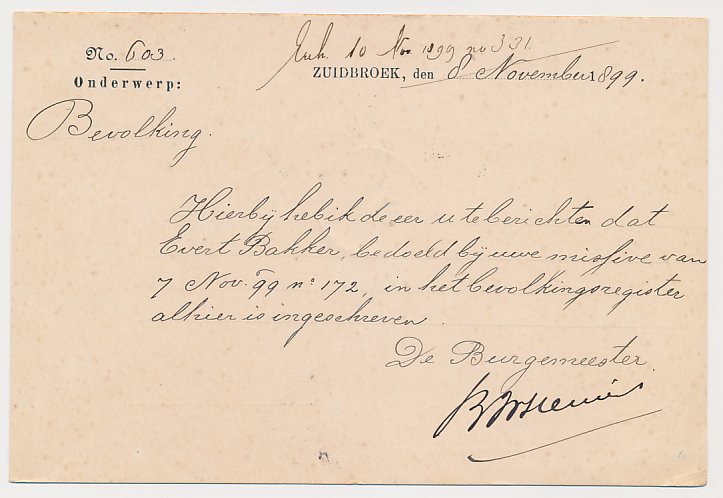 Ink. 10 Nov 1899 no 331.
No. 603.
ZUIDBROEK, den 8 November 1899.
Onderwerp:
Bevolking.
Hierbij heb ik de eer u te berichten dat
Evert Bakker, bedoeld bij uwe missive van
7 Nov. 99 nº 172, in het bevolkingsregister
alhier is ingeschreven.
De Burgemeester